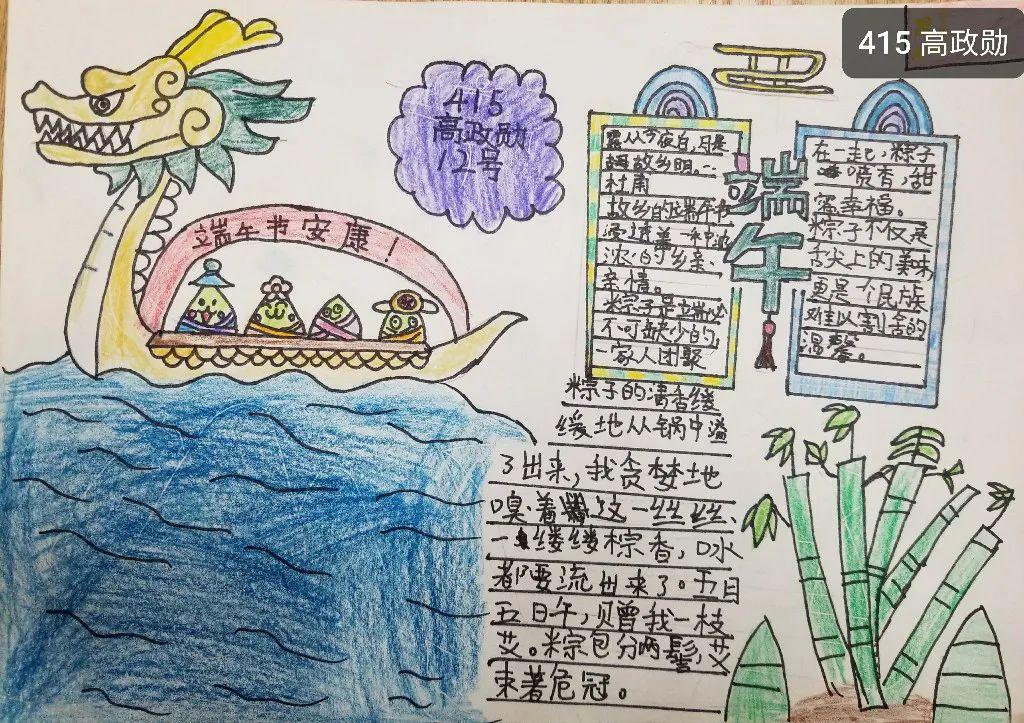 415 高政勋
415
高政勋
12号
端午节安康！
端午
露从今夜白，月是
故乡明。
杜甫
故乡的端午节
浓的乡亲、
亲情。
粽子是端午
不可缺少的，
一家人团聚
在一起，粽子
喷香，甜
蜜幸福。
粽子不仅是
舌尖上的美味，
更是一个民族
难以割舍的
温馨。
粽子的清香缕
缓地从锅中溢
了出来，我贪梦地
嗅着这一丝丝、
一缕缕粽香，口水
都要流出来了。五月
五日午，赠我一枝
艾。粽包分两髻，艾
束著危冠。